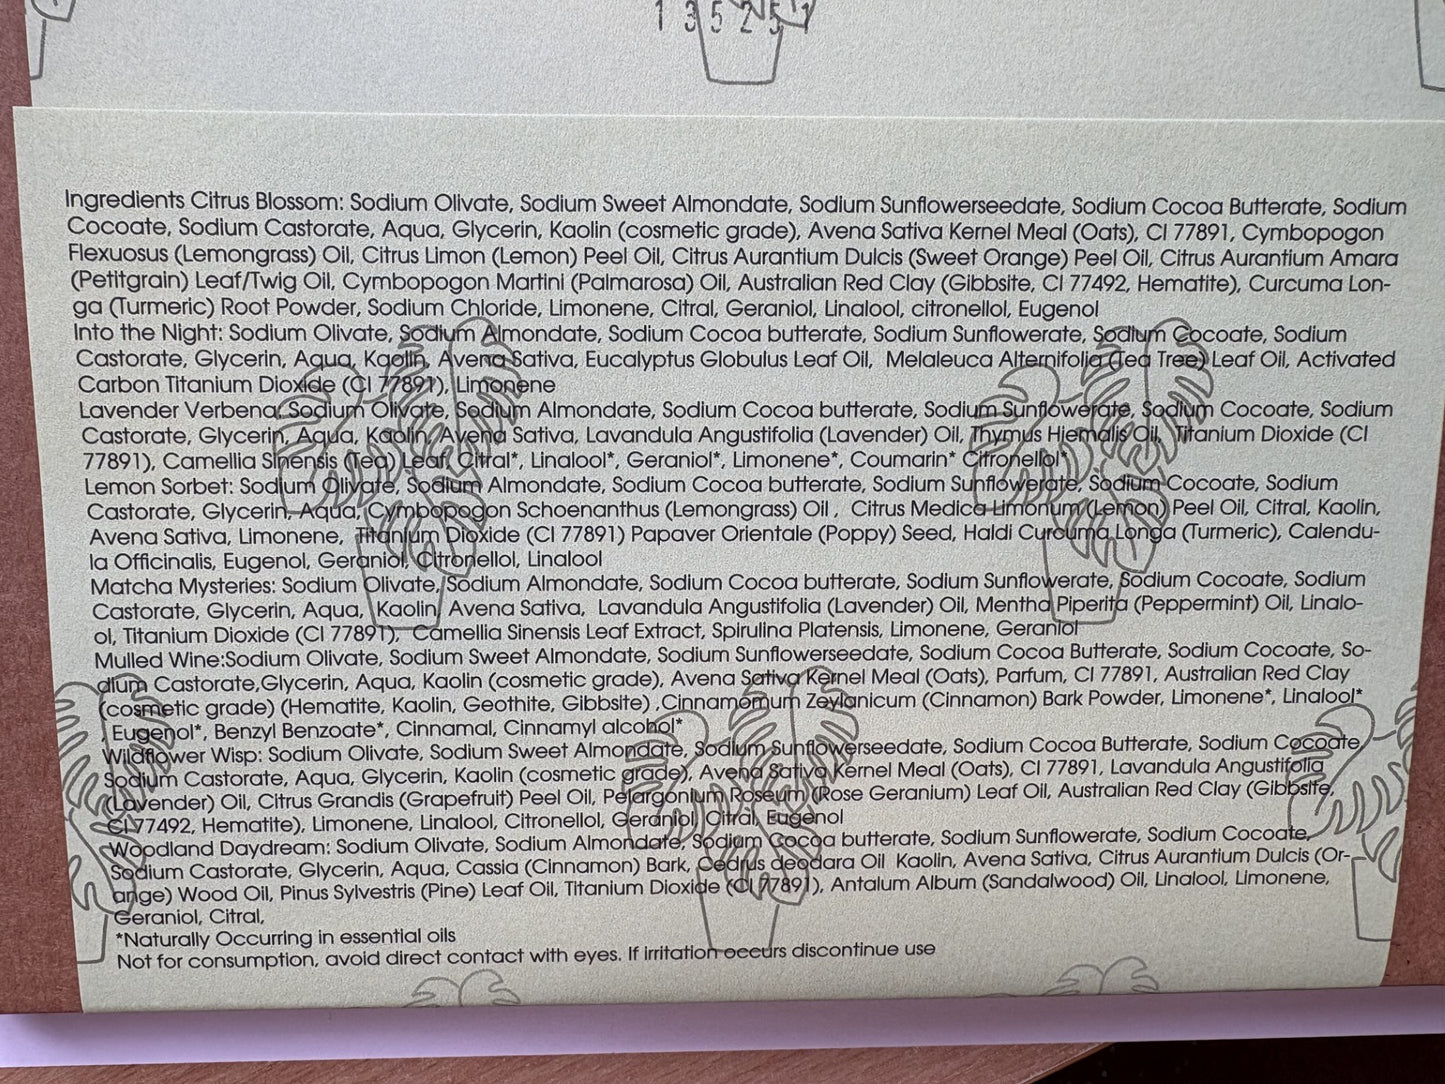 1 3 5 2 5 1
Ingredients Citrus Blossom: Sodium Olivate, Sodium Sweet Almondate, Sodium Sunflowerseedate, Sodium Cocoa Butterate, Sodium
Cocoate, Sodium Castorate, Aqua, Glycerin, Kaolin (cosmetic grade), Avena Sativa Kernel Meal (Oats), CI 77891, Cymbopogon
Flexuosus (Lemongrass) Oil, Citrus Limon (Lemon) Peel Oil, Citrus Aurantium Dulcis (Sweet Orange) Peel Oil, Citrus Aurantium Amara
(Petitgrain) Leaf/Twig Oil, Cymbopogon Martini (Palmarosa) Oil, Australian Red Clay (Gibbsite, CI 77492, Hematite), Curcuma Lon-
ga (Turmeric) Root Powder, Sodium Chloride, Limonene, Citral, Geraniol, Linalool, citronellol, Eugenol
Into the Night: Sodium Olivate, Sodium Almondate, Sodium Cocoa butterate, Sodium Sunflowerate, Sodium Cocoate, Sodium
Castorate, Glycerin, Aqua, Kaolin, Avena Sativa, Eucalyptus Globulus Leaf Oil, Melaleuca Alternifolia (Tea Tree) Leaf Oil, Activated
Carbon Titanium Dioxide (CI 77891), Limonene
Lavender Verbena: Sodium Olivate, Sodium Almondate, Sodium Cocoa butterate, Sodium Sunflowerate, Sodium Cocoate, Sodium
Castorate, Glycerin, Aqua, Kaolin, Avena Sativa, Lavandula Angustifolia (Lavender) Oil, Thymus Hiemalis Oil, Titanium Dioxide (CI
77891), Camellia Sinensis (Tea) Leaf, Citral*, Linalool*, Geraniol*, Limonene*, Coumarin* Citronellol*
Lemon Sorbet: Sodium Olivate, Sodium Almondate, Sodium Cocoa butterate, Sodium Sunflowerate, Sodium Cocoate, Sodium
Castorate, Glycerin, Aqua, Cymbopogon Schoenanthus (Lemongrass) Oil , Citrus Medica Limonum (Lemon) Peel Oil, Citral, Kaolin,
Avena Sativa, Limonene, Titanium Dioxide (CI 77891) Papaver Orientale (Poppy) Seed, Haldi Curcuma Longa (Turmeric), Calendu-
la Officinalis, Eugenol, Geraniol, Citronellol, Linalool
Matcha Mysteries: Sodium Olivate, Sodium Almondate, Sodium Cocoa butterate, Sodium Sunflowerate, Sodium Cocoate, Sodium
Castorate, Glycerin, Aqua, Kaolin, Avena Sativa, Lavandula Angustifolia (Lavender) Oil, Mentha Piperita (Peppermint) Oil, Linalo-
ol, Titanium Dioxide (CI 77891), Camellia Sinensis Leaf Extract, Spirulina Platensis, Limonene, Geraniol
Mulled Wine:Sodium Olivate, Sodium Sweet Almondate, Sodium Sunflowerseedate, Sodium Cocoa Butterate, Sodium Cocoate, So-
dium Castorate,Glycerin, Aqua, Kaolin (cosmetic grade), Avena Sativa Kernel Meal (Oats), Parfum, CI 77891, Australian Red Clay
(cosmetic grade) (Hematite, Kaolin, Geothite, Gibbsite) ,Cinnamomum Zeylanicum (Cinnamon) Bark Powder, Limonene*, Linalool*
, Eugenol*, Benzyl Benzoate*, Cinnamal, Cinnamyl alcohol*
Wildflower Wisp: Sodium Olivate, Sodium Sweet Almondate, Sodium Sunflowerseedate, Sodium Cocoa Butterate, Sodium Cocoate,
Sodium Castorate, Aqua, Glycerin, Kaolin (cosmetic grade), Avena Sativa Kernel Meal (Oats), CI 77891, Lavandula Angustifolia
(Lavender) Oil, Citrus Grandis (Grapefruit) Peel Oil, Pelargonium Roseum (Rose Geranium) Leaf Oil, Australian Red Clay (Gibbsite,
CI 77492, Hematite), Limonene, Linalool, Citronellol, Geraniol, Citral, Eugenol
Woodland Daydream: Sodium Olivate, Sodium Almondate, Sodium Cocoa butterate, Sodium Sunflowerate, Sodium Cocoate,
Sodium Castorate, Glycerin, Aqua, Cassia (Cinnamon) Bark, Cedrus deodara Oil Kaolin, Avena Sativa, Citrus Aurantium Dulcis (Or-
ange) Wood Oil, Pinus Sylvestris (Pine) Leaf Oil, Titanium Dioxide (CI 77891), Antalum Album (Sandalwood) Oil, Linalool, Limonene,
Geraniol, Citral,
*Naturally Occurring in essential oils
Not for consumption, avoid direct contact with eyes. If irritation occurs discontinue use